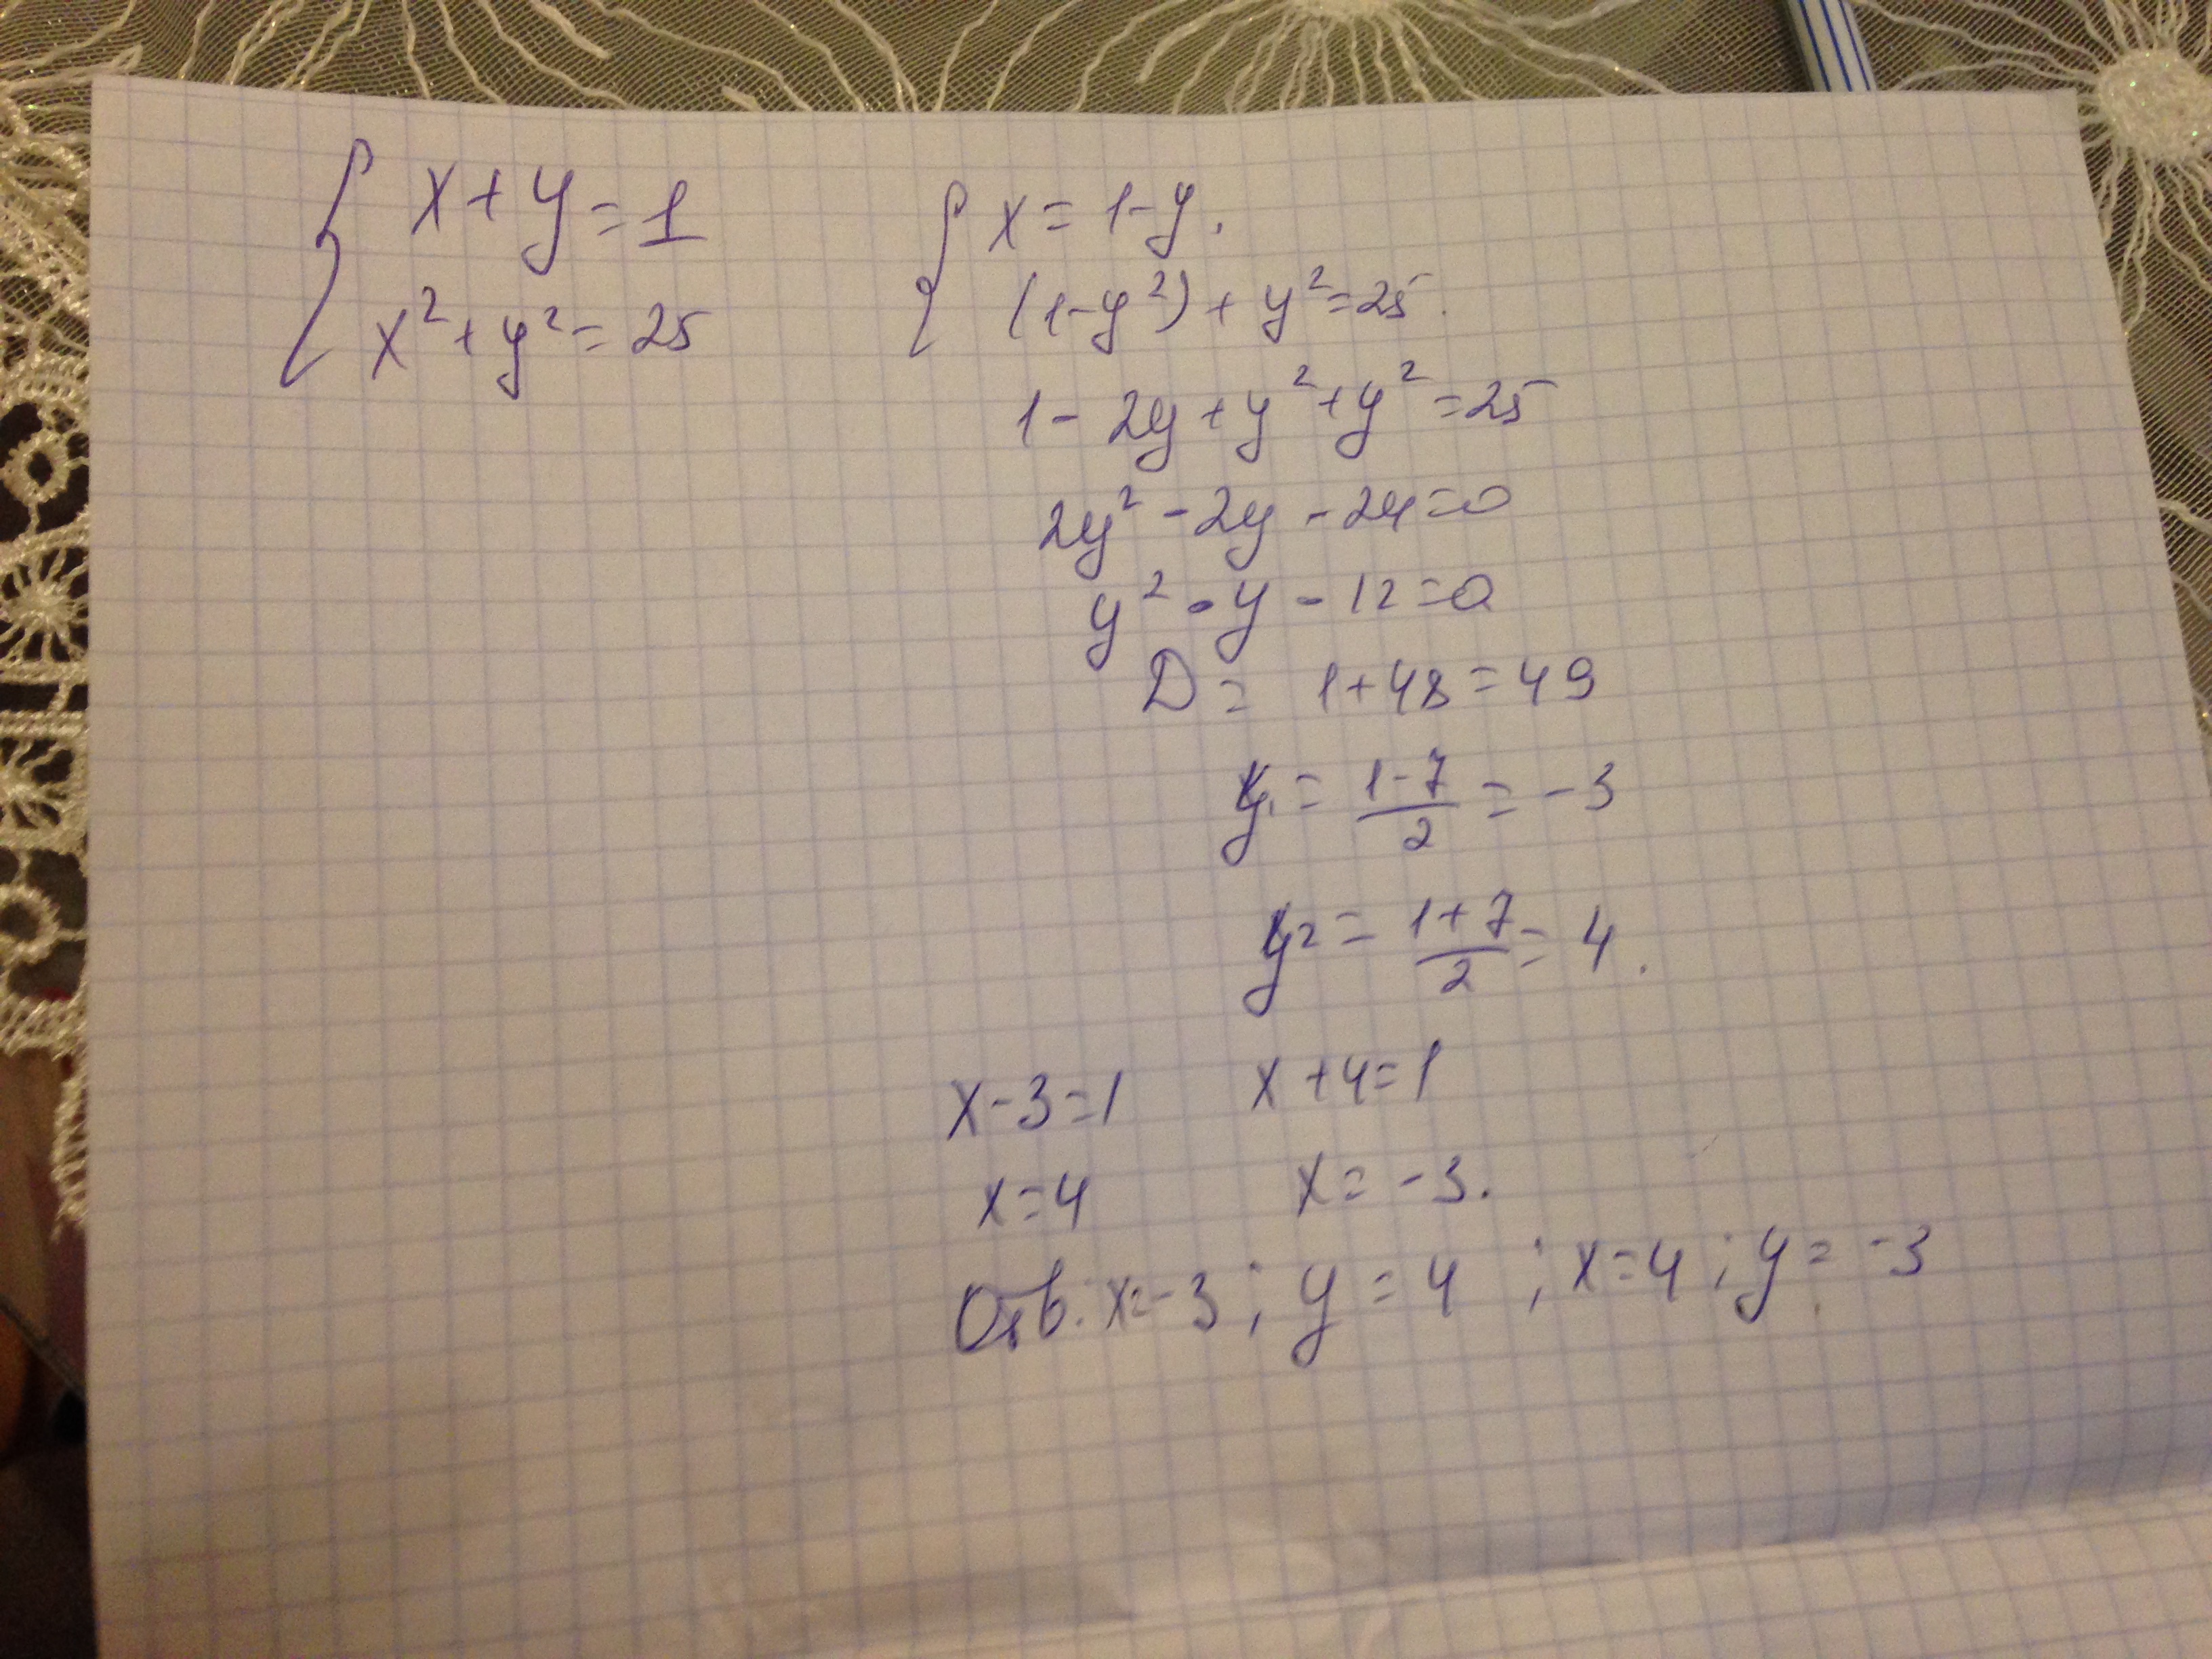 x + y = 1
x² + y² = 25
x = 1 - y.
(1 - y²) + y² = 25.
1 - 2y + y² + y² = 25
2y² - 2y - 24 = 0
y² - y - 12 = 0
D = 1 + 48 = 49
y₁ = (1 - 7)/2 = -3
y₂ = (1 + 7)/2 = 4.
x - 3 = 1 x + 4 = 1
x = 4 x = -3.
Отв: x = -3; y = 4; x = 4; y = -3